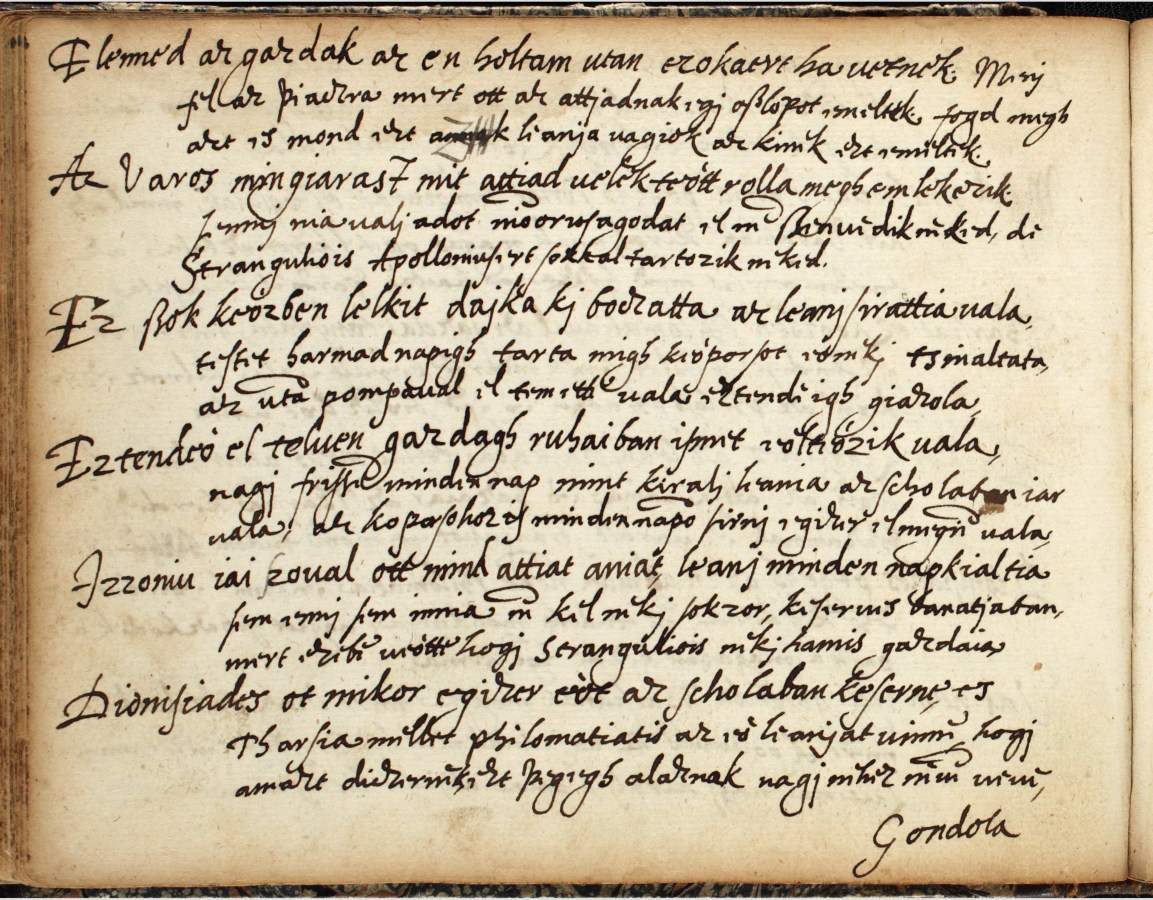 Elenned az gazdak az en holtam utan ezokaert ha vetnek, Menj
fel az piaczra mert ott az attjadnak egj oßlopot emeltek, fogd megh
azt is mond ezt leanja vagiok az kinek ezt emeltek.
Az Varos mingiarast mit attiad velek teött rolla megh emlekezik
Jennj nia valj adot nioorusagodat el nē ßenvedik neked, de
Stranguliois Apolloniusert sokkal tartozik neked.
Ez ßok keözben lelkit dajka kj boczatta az leanj sirattia vala,
testet harmad napigh tarta migh keoporsot es nekj tsinaltata,
az utā pompaval el temette vala eztendeigh giazola,
Eztendeö el telven gazdagh ruhaiban ismet eölteözik vala,
nagj frissē minden nap mint keralj leania az scholaban iar
vala, az koporsohoz is minden napō sirnj egizer el megiē vala,
Izzoniu iai zoval ott mind attiat aniāt, leanj minden nap kialtia
sem ennj sem innia nē kel nekj sokzor, keserves banatjaban,
mert ezebē veötte hogj Stranguliois nekj hamis gazdaia,
Dionisiades ot mikor egizer eöt az scholaban keserne, es
Tharsia mellet philomatiatis az eö leanjat vinnē, hogj
amazt diczernek, ezt pegigh alaznak nagj nehez nevē vevē,
Gondola